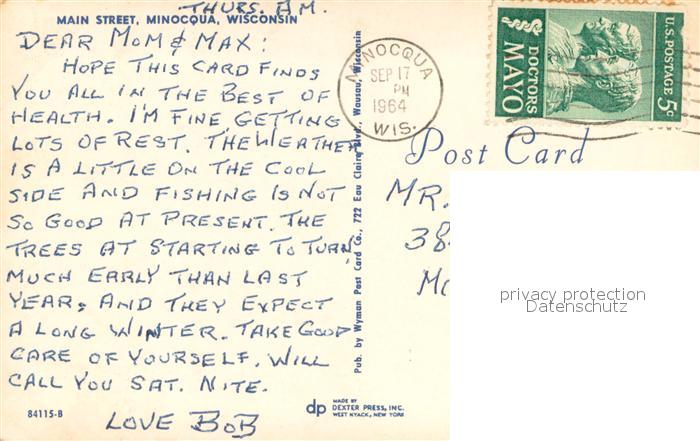 THURS. A.M.
MAIN STREET, MINOCQUA, WISCONSIN
DEAR MOM & MAX:
HOPE THIS CARD FINDS
YOU ALL IN THE BEST OF
HEALTH. I'M FINE GETTING
LOTS OF REST. THE WEATHER
IS A LITTLE ON THE COOL
SIDE AND FISHING IS NOT
SO GOOD AT PRESENT. THE
TREES AT STARTING TO TURN
MUCH EARLY THAN LAST
YEAR, AND THEY EXPECT
A LONG WINTER. TAKE GOOD
CARE OF YOURSELF. WILL
CALL YOU SAT. NITE.
LOVE BOB
84115-B
Pub. by Wyman Post Card Co., 722 Eau Claire Blvd., Wausau, Wisconsin
dp MADE BY
DEXTER PRESS, INC.
WEST NYACK, NEW YORK
MINOCQUA
SEP 17
PM
1964
WIS.
DOCTORS
MAYO
U.S. POSTAGE 5c
Post Card
MR.
privacy protection
Datenschutz